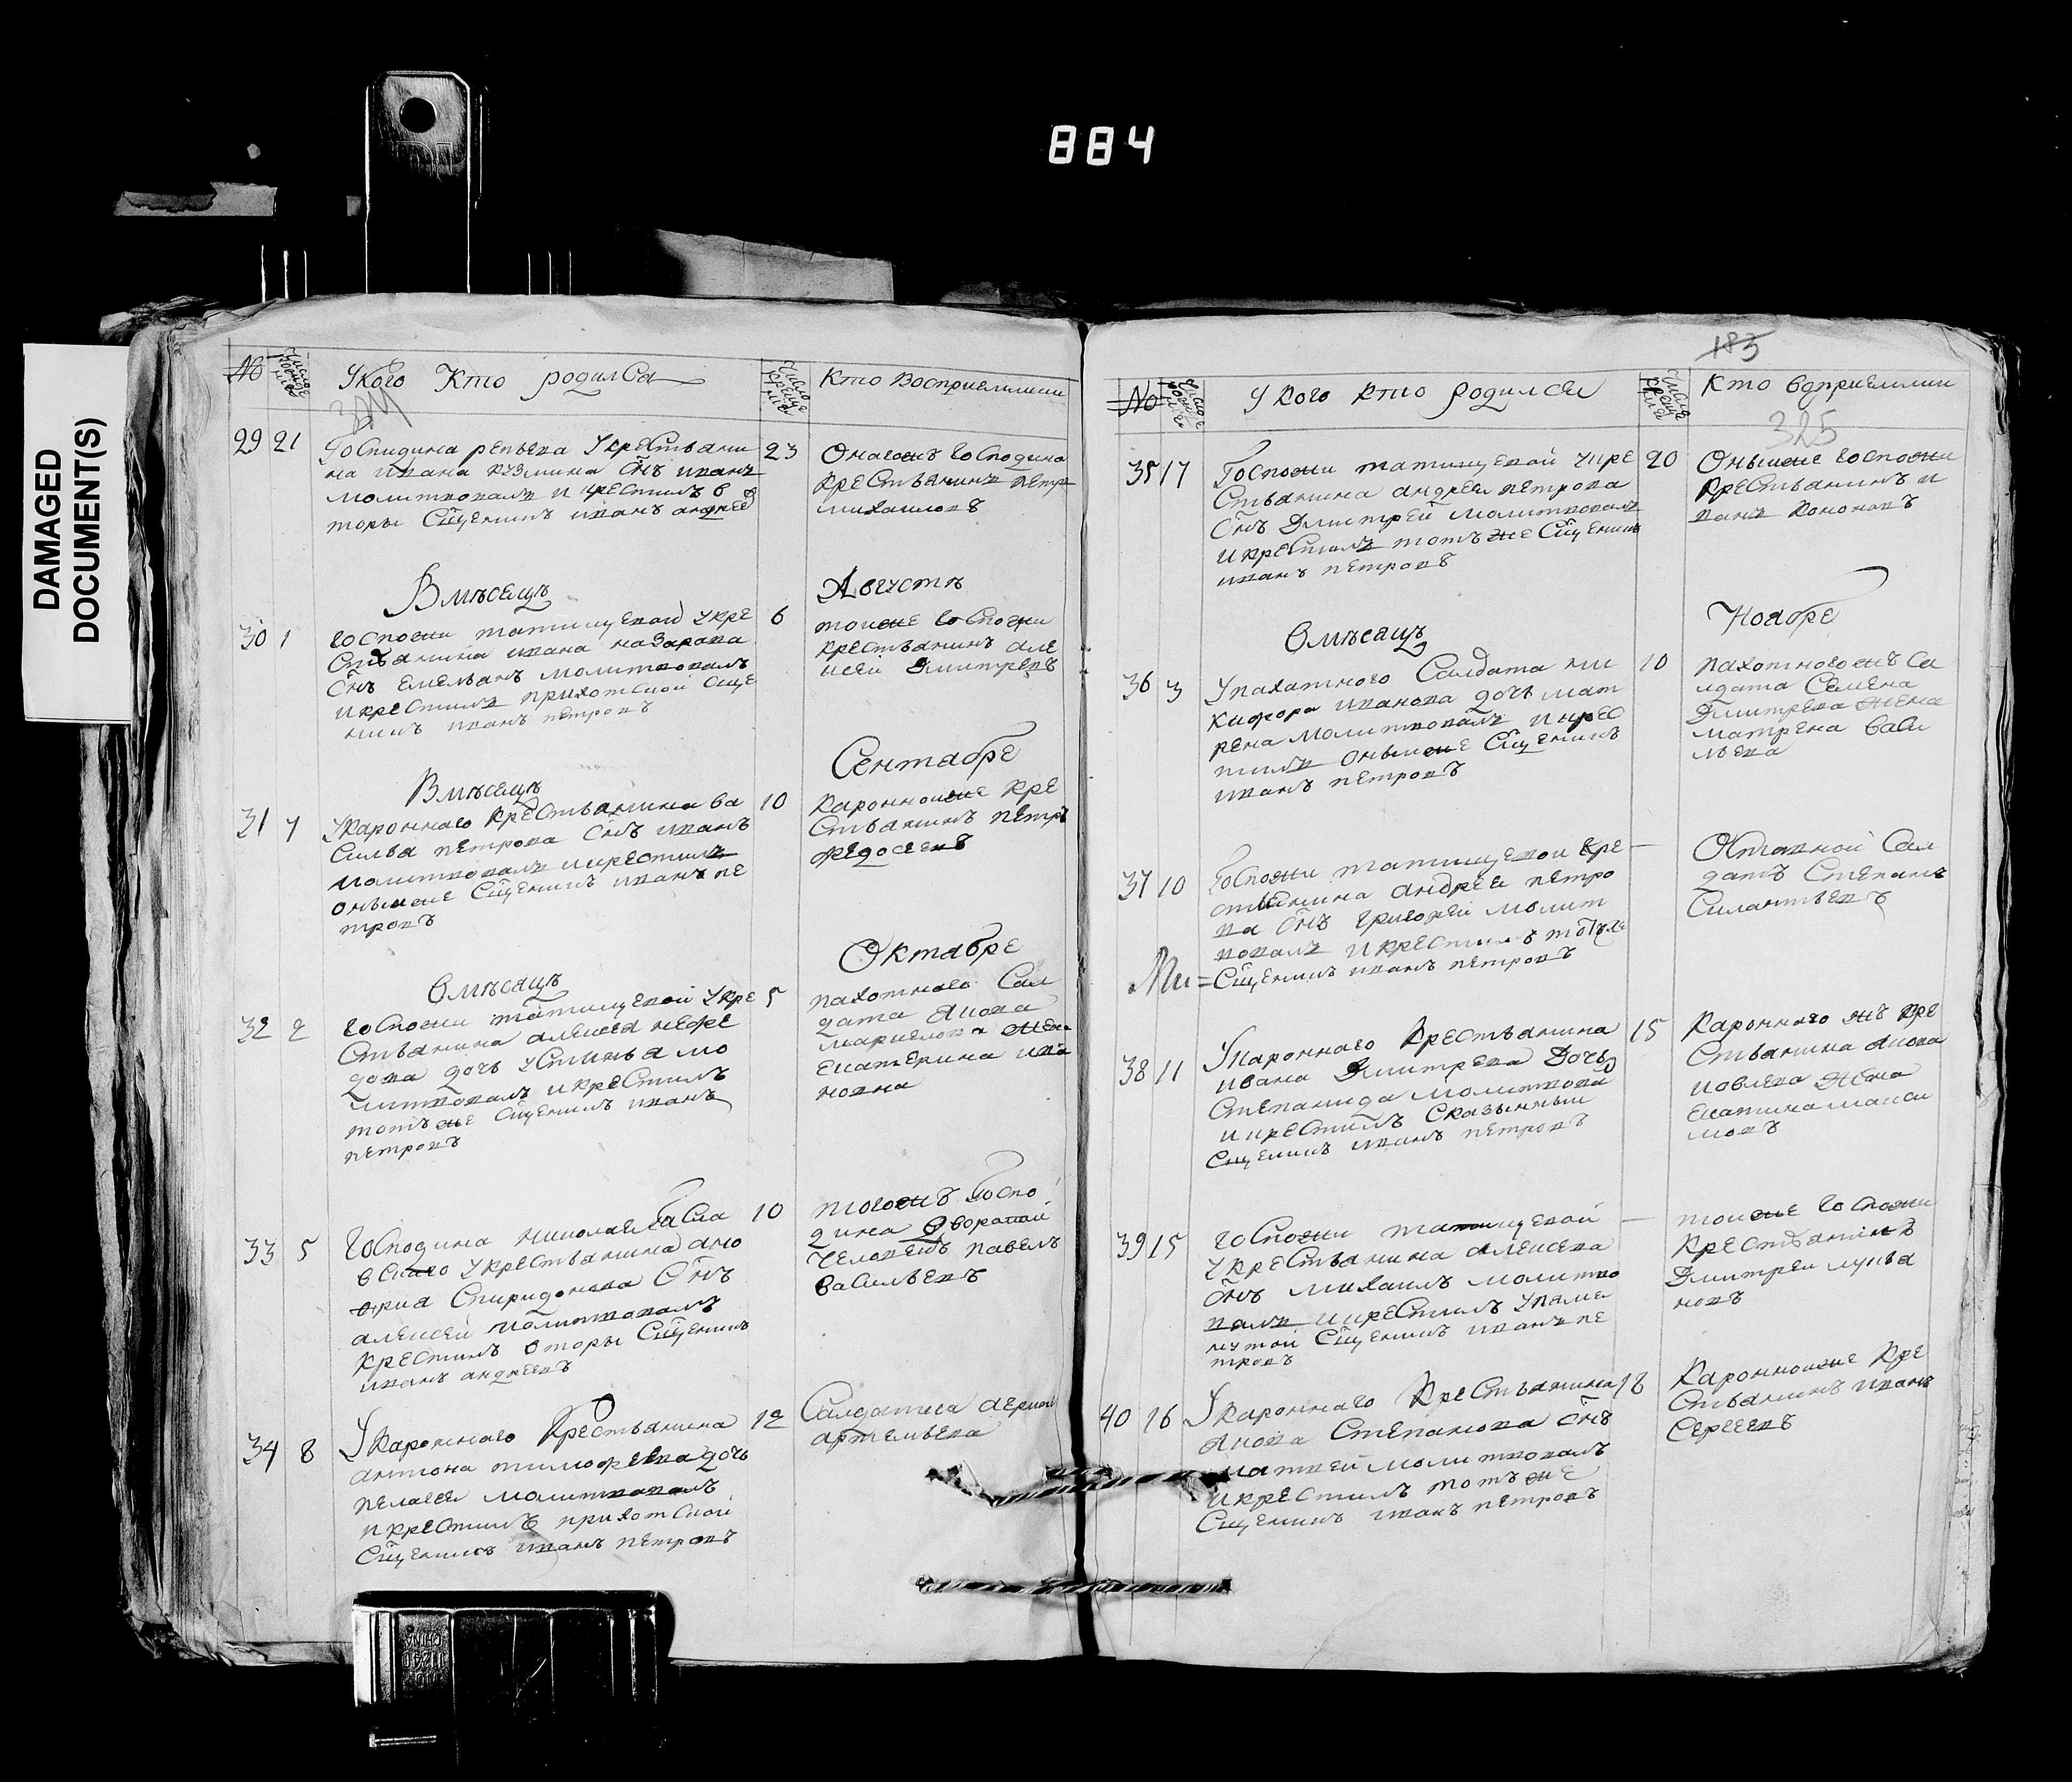 884
DAMAGED
DOCUMENT(S)
№
число рожде нiя
У кого Кто родился
число креще нiя
Кто Восприемники
29 21
Господина репьева У крестьяни
на ивана кузмина Снъ иванъ
молитвовалъ и крестилъ в
торы Сщенникъ иванъ андрее
23
Оногожъ господина
крестьянинъ петръ
михаиловъ
Вмѣсецъ
Августѣ
30 1
госпожи татищевой У кре
стьянина ивана назарова
Снъ емельянъ молитвовалъ
и крестилъ прихотской сще
никъ иванъ петровъ
6
тоиже госпожи
крестьянинъ але
ксей дмитревъ
Вмѣсецъ
Сентабре
31 7
У каронного крестьянина ва
силья петрова Снъ иванъ
молитвовалъ и крестилъ
оныиже Сщенникъ иванъ пе
тровъ
10
каронноиже кре
стьянинъ петръ
федосеевъ
Вмѣсяцъ
Октабре
32 2
госпожи татищевой У кре
стьянина алексея нефе
дова дочь Устинья мо
литвовалъ и крестилъ
тотъ же Сщенникъ иванъ
петровъ
5
пахотного Сал
дата якова
жена
екатерина ива
новна
33 5
господина николая
вскаго У крестьянина ано
фрия Спиридонова Снъ
алексей молитвовалъ
крестилъ вторы Сщенникъ
иванъ андреевъ
10
тогожъ госпо
дина дворовой
человекъ павелъ
васильевъ
34 8
У каронного крестьянина
антона тимофеева дочь
пелагея молитвовалъ
и крестилъ прихотской
Сщенникъ иванъ петровъ
12
Салдатка
артемьева
183
№
У кого кто родился
кто вдприемники
325
35 17
Госпожи татищевой У кре
стьянина андрея петрова
Снъ дмитрей молитвовалъ
и крестилъ тотъ же Сщенникъ
иванъ петровъ
20
Оныиже госпожи
крестьянинъ и
ванъ кононовъ
Вмѣсяцъ
Ноабре
36 3
У пахатного Салдата ни
кифора иванова дочь мат
рена молитвовалъ и крес
тилъ оныиже Сщенникъ
иванъ петровъ
10
пахотногожъ са
лдата Семена
дмитрева жена
матрена васи
льева
37 10
госпожи татищевои кре
стьянина андрея петро
ва Снъ григорей молит
вовалъ и крестилъ тотъже
Сщенникъ иванъ петровъ
—
Отставной Сал
датъ Степанъ
Силантьевъ
38 11
У каронного крестьянина
ивана дмитрева дочь
Степанида молитвова
и крестилъ Сказынныи
Сщенникъ иванъ петровъ
15
каронного жъ кре
стьянина якова
иовлева жена
екатина макси
мовъ
39 15
госпожи татищевой
У крестьянина алексева
Снъ михаилъ молитво
валъ и крестилъ Упаме
нутой Сщенникъ иванъ пе
тровъ
—
тоиже госпожи
крестьянинъ
дмитреи лукья
новъ
40 16
У каронного крестьянина
якова Степанова Снъ
матвей молитвовалъ
и крестилъ тотъ же
Сщенникъ иванъ петровъ
18
каронноиже кре
стьянинъ иванъ
Сергеевъ